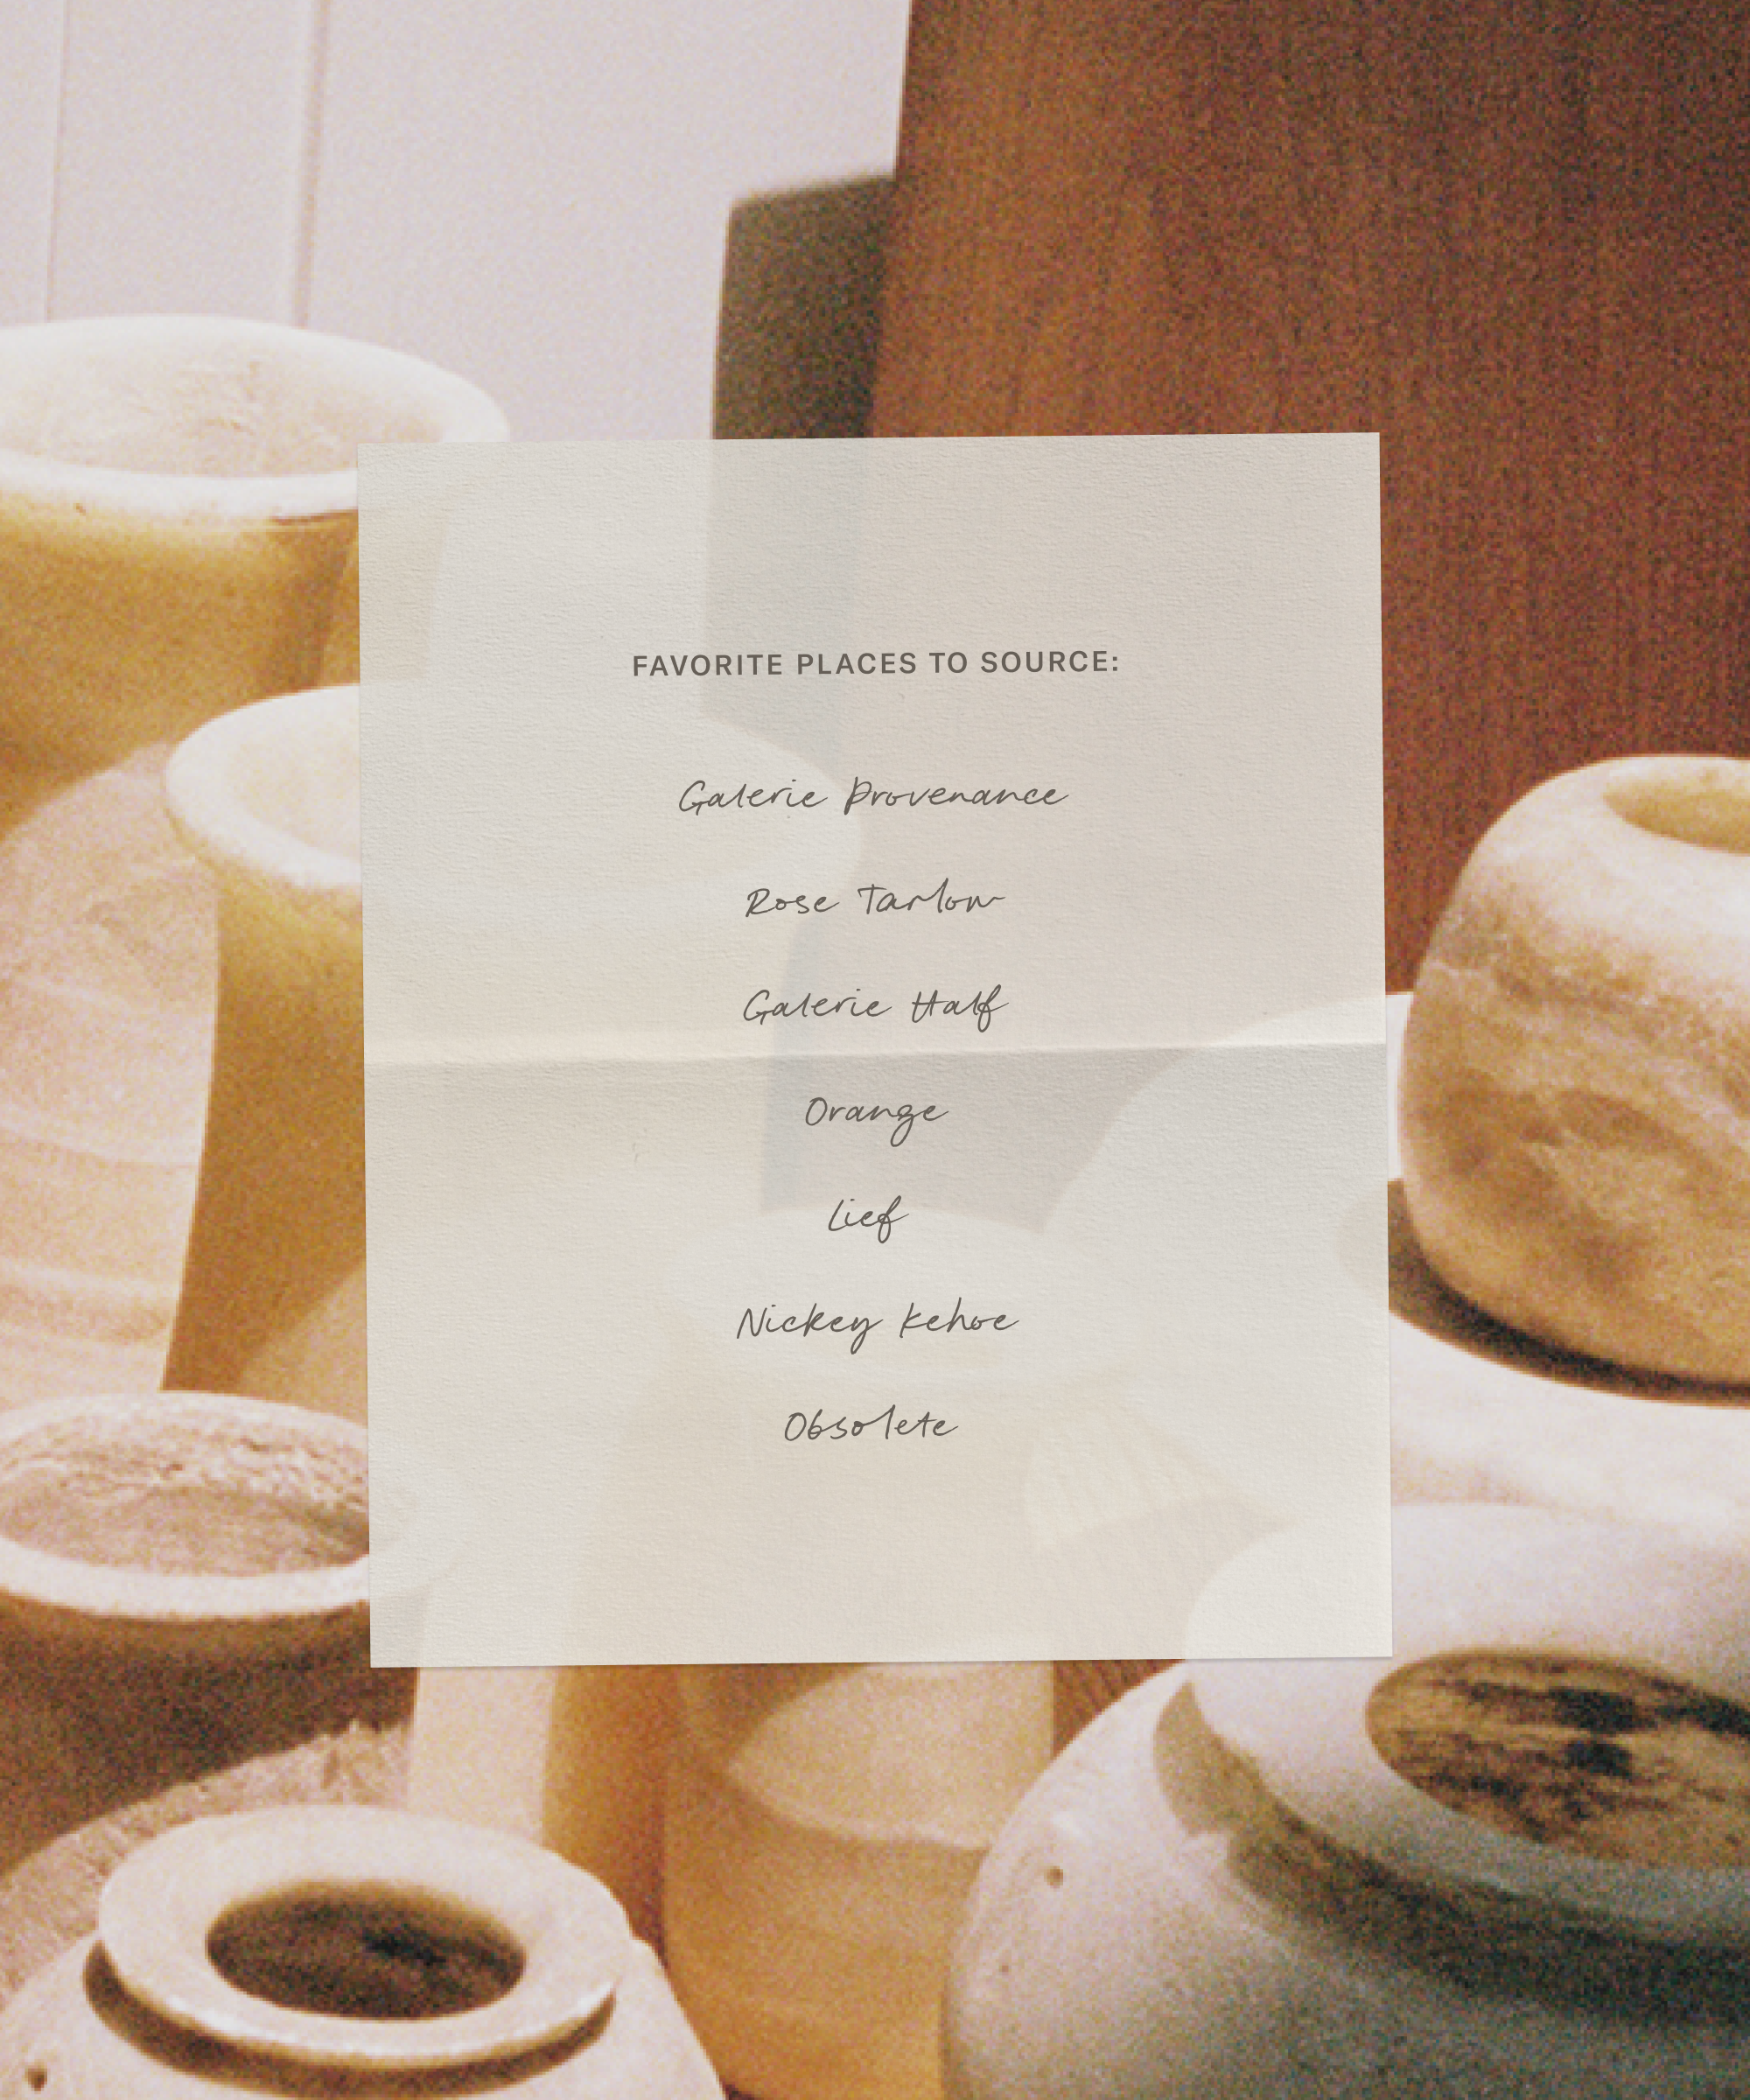 FAVORITE PLACES TO SOURCE:
Galerie Provenance
Rose Tarlow
Galerie Half
Orange
Lief
Nickey Kehoe
Obsolete